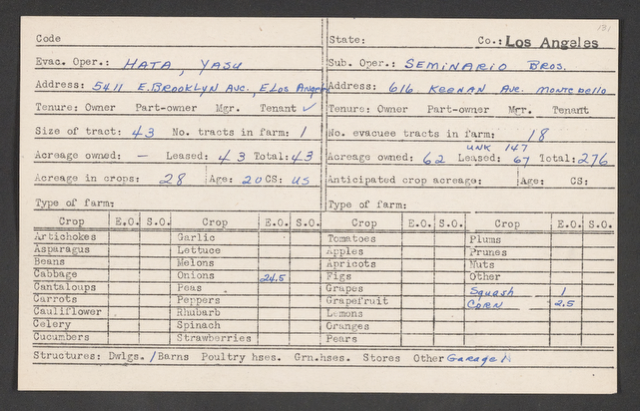 181
Code State: Co.: Los Angeles
Evac. Oper.: HATA, YASU Sub. Oper.: SEMINARIO BROS.
Address: 5411 E. BROOKLYN AVE., E LOS Angeles Address: 616 KEENAN AVE. MONTEBELLO
Tenure: Owner Part-owner Mgr. Tenant ✓ Tenure: Owner Part-owner Mgr. Tenant
Size of tract: 43 No. tracts in farm: 1 No. evacuee tracts in farm: 18
UNK 147
Acreage owned: — Leased: 43 Total: 43 Acreage owned: 62 Leased: 67 Total: 276
Acreage in crops: 28 Age: 20 CS: US Anticipated crop acreage: Age: CS:
Type of farm: Type of farm:
Crop E.O. S.O. Crop E.O. S.O. Crop E.O. S.O. Crop E.O. S.O.
Artichokes Garlic Tomatoes Plums
Asparagus Lettuce Apples Prunes
Beans Melons Apricots Nuts
Cabbage Onions 24.5 Figs Other
Cantaloups Peas Grapes Squash 1
Carrots Peppers Grapefruit CORN 2.5
Cauliflower Rhubarb Lemons
Celery Spinach Oranges
Cucumbers Strawberries Pears
Structures: Dwlgs. / Barns Poultry hses. Grn.hses. Stores Other Garage